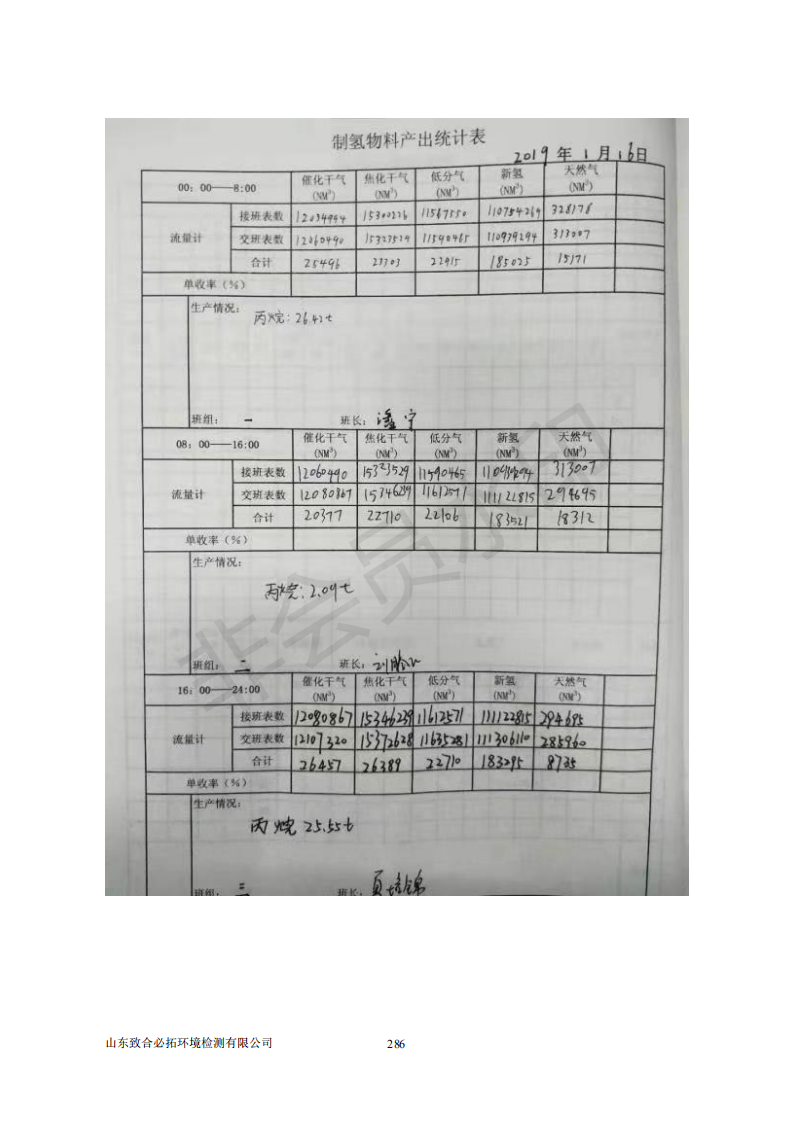 制氢物料产出统计表
2019 年 1 月 16日
00：00——8:00 催化干气(NM³) 焦化干气(NM³) 低分气(NM³) 新氢(NM³) 天然气(NM³)
流量计 接班表数 12034994 15300226 11567550 110754269 328178
交班表数 12060490 15323529 11590465 110939294 313007
合计 25496 23303 22915 185025 15171
单收率（%）
生产情况：
丙烷：26.42t
班组： 一 班长：
08：00——16:00 催化干气(NM³) 焦化干气(NM³) 低分气(NM³) 新氢(NM³) 天然气(NM³)
流量计 接班表数 12060490 15323529 11590465 110939294 313007
交班表数 12080867 15346239 11612571 111122815 294695
合计 20377 22710 22106 183521 18312
单收率（%）
生产情况：
丙烷：2.09t
班组： 二 班长：
16：00——24:00 催化干气(NM³) 焦化干气(NM³) 低分气(NM³) 新氢(NM³) 天然气(NM³)
流量计 接班表数 12080867 15346239 11612571 111122815 294695
交班表数 12107320 15372628 11635281 111306110 285960
合计 26457 26389 22710 183295 8735
单收率（%）
生产情况：
丙烷 25.55t
班组： 三 班长：
非会员水印
山东致合必拓环境检测有限公司 286